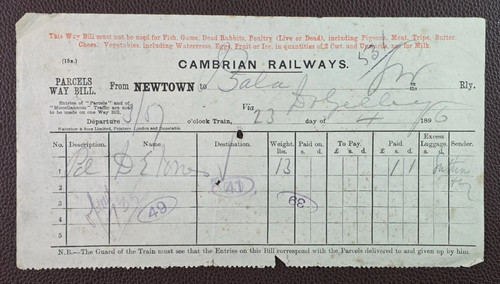 This Way Bill must not be used for Fish, Game, Dead Rabbits, Poultry (Live or Dead), including Pigeons, Meat, Tripe, Butter,
Cheese, Vegetables, including Watercress, Eggs, Fruit or Ice, in quantities of 2 Cwt. and Upwards, nor for Milk.
(15x.) CAMBRIAN RAILWAYS.
PARCELS
WAY BILL.
From NEWTOWN to Bala Rly.
Entries of "Parcels" and of
"Miscellaneous" Traffic are not
to be made on one Way Bill.
Via Dolgelley
Departure 3/50 o'clock Train, 23 / 4 1896
Waterlow & Sons Limited, Printers, London and Dunstable.
No. Description. Name Destination. Weight. lbs. Paid on. s. d. To Pay. £ s. d. Paid. £ s. d. Excess Luggage. s. d. Sender.
1 Pcl D E Jones 13 1 1
2 41
3 49 39
4
5
N.B.—The Guard of the Train must see that the Entries on this Bill correspond with the Parcels delivered to and given up by him.